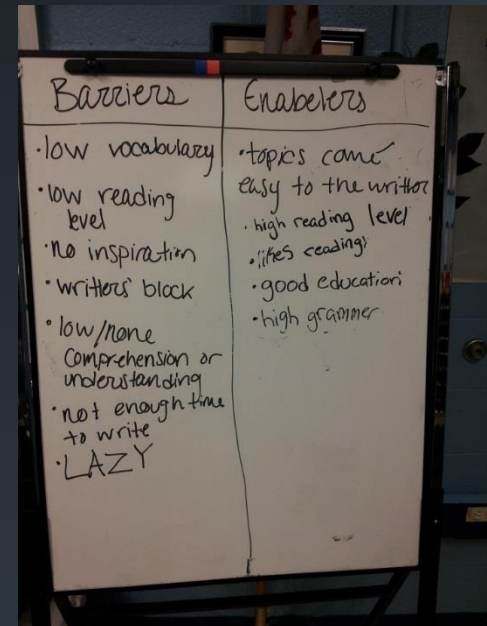 Barriers
• low vocabulary
• low reading
level
• no inspiration
• writters' block
• low/none
comprehension or
understanding
• not enough time
to write
• LAZY
Enabelers
• topics come
easy to the writter
• high reading level
• likes reading
• good education
• high grammer